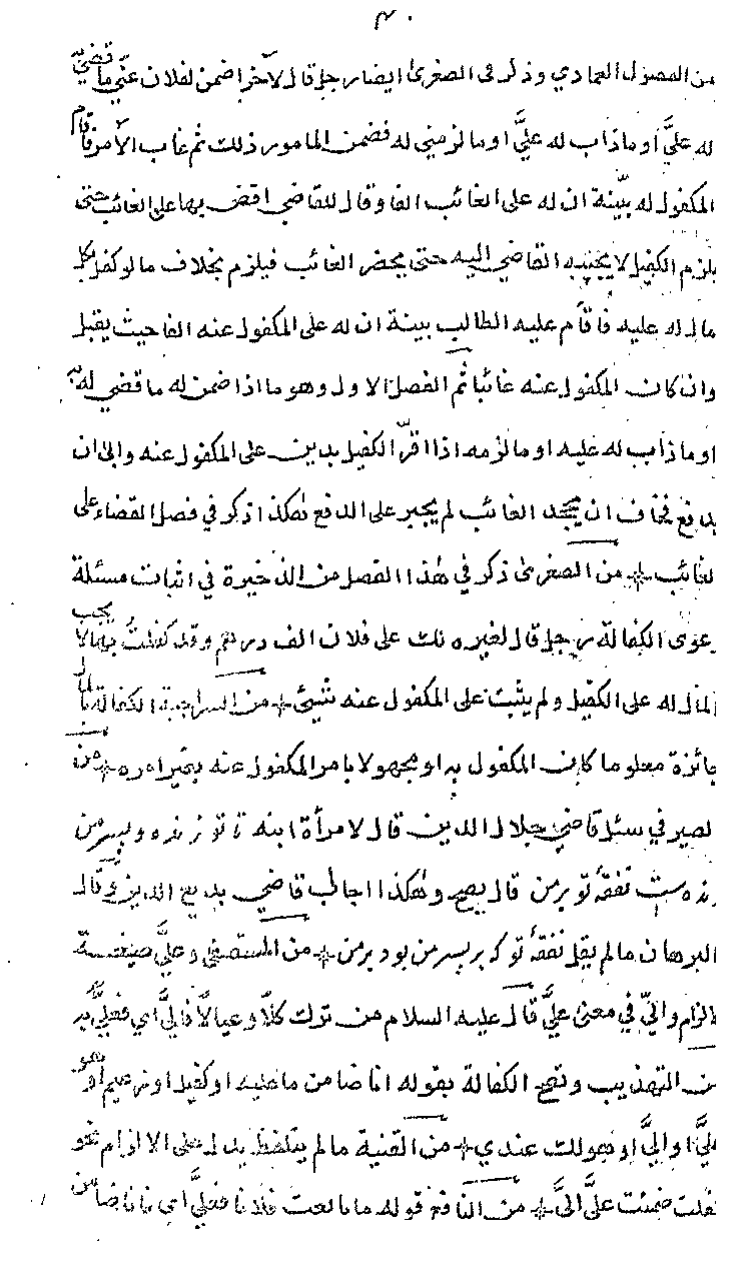 من الفصول العمادي وذكر فى الصغرى ايضا رجل قال لآخر اضمن لفلان عنّي ما قضي
له عليَّ او ماذاب له عليَّ او ما لزمني له فضمن المامور ذلك ثم غاب الآمر فاقام
المكفول له بيّنة ان له على الغائب الفا وقال للقاضي اقض بها على الغائب حتى
يلزم الكفيل لا يجيبه القاضي اليه حتى يحضر الغائب فيلزم بخلاف ما لو كفل بكل
مال له عليه فاقام عليه الطالب بينة ان له على المكفول عنه الفا حيث يقبل
وان كان المكفول عنه غائبا ثم الفصل الاول وهو ما اذا ضمن له ما قضي له
او ماذاب له عليه او ما لزمه اذا اقرّ الكفيل بدين على المكفول عنه وابى ان
يدفع فخاف ان يجحد الغائب لم يجبر على الدفع هكذا ذكر في فصل القضاء على
الغائب من الصغرى ذكر في هذا الفصل من الذخيرة في اثبات مسئلة
دعوى الكفالة رجل قال لغيره لك على فلان الف درهم وقد كفلتُ بها لا يجب
المال له على الكفيل ولم يثبت على المكفول عنه شيئ من السراجية الكفالة بالمال
جائزة معلوما كان المكفول به او مجهولا بامر المكفول عنه بغير امره من
الصيرفي سئل قاضي جلال الدين قال لامرأة ابنه تا تو زنده وپسر من
زنده ست نفقهٔ تو برمن قال يصح وهكذا اجاب قاضي بديع الدين وقال
البرهان ما لم يقل نفقهٔ تو كه بر پسر من بود بر من من المستصفى وعليَّ صيغة
الزام واليّ في معنى عليَّ قال عليه السلام من ترك كلًّا وعيالًا فاليَّ اي فعليَّ
من التهذيب وتصح الكفالة بقوله انا ضامن ما عليه او كفيل او زعيم او هو
عليَّ او اليَّ او هو لك عندي من القنية ما لم يتلفظ بدل على الالزام نحو
كفلت ضمنت عليَّ اليَّ من النافع قوله ما بايعت فلانا فعليَّ اي فانا ضامن